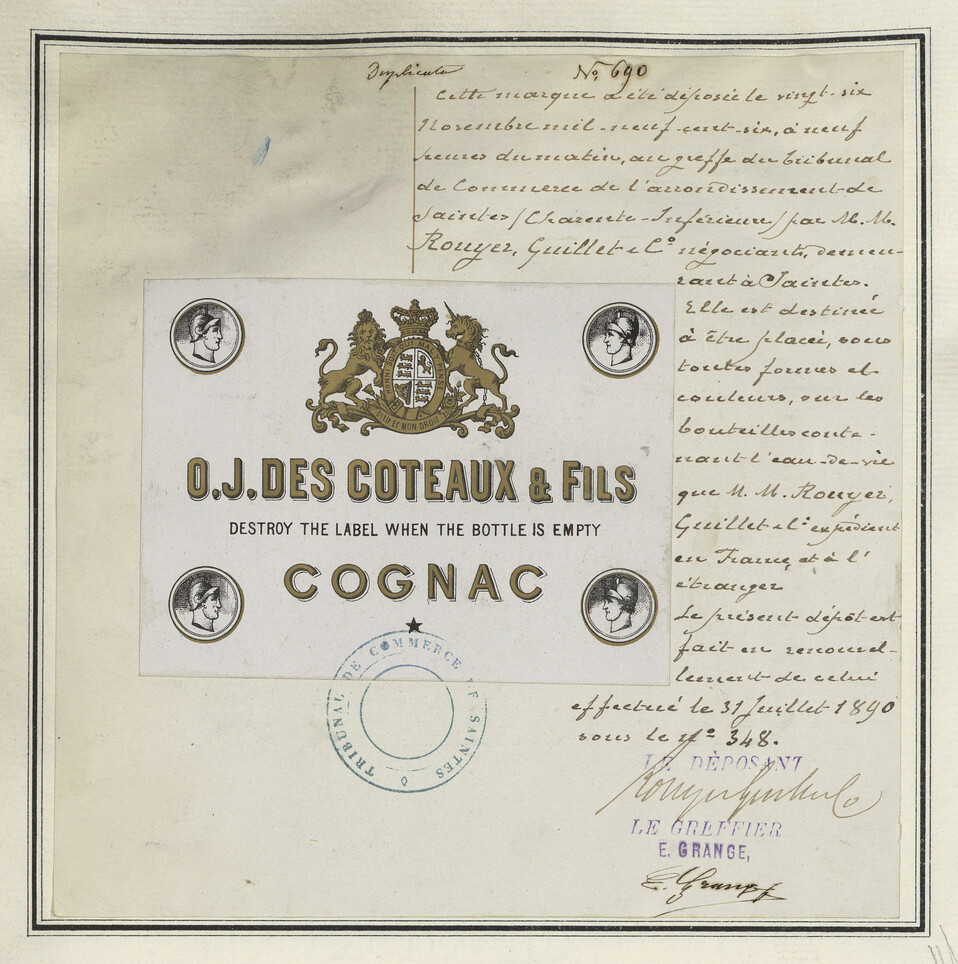 Duplicata
No. 690
Cette marque a été déposée le vingt-six
Novembre mil-neuf-cent-six, à neuf
heures du matin, au greffe du tribunal
de Commerce de l'arrondissement de
Saintes (Charente-Inférieure) par M. M.
Rouyer, Guillet & Co négociants, demeu-
rant à Saintes.
Elle est destinée
à être placée, sous
toutes formes et
couleurs, sur les
bouteilles conte-
nant l'eau-de-vie
que M. M. Rouyer,
Guillet & Co expédient
en France et à l'
étranger
Le présent dépôt est
fait en renouvel-
lement de celui
effectué le 31 Juillet 1890
sous le No 348.
HONI SOIT QUI MAL Y PENSE
DIEU ET MON DROIT
O.J. DES COTEAUX & FILS
DESTROY THE LABEL WHEN THE BOTTLE IS EMPTY
COGNAC
TRIBUNAL DE COMMERCE DE SAINTES
LE DÉPOSANT
Rouyer Guillet & Co
LE GREFFIER
E. GRANGE,
E. Grange